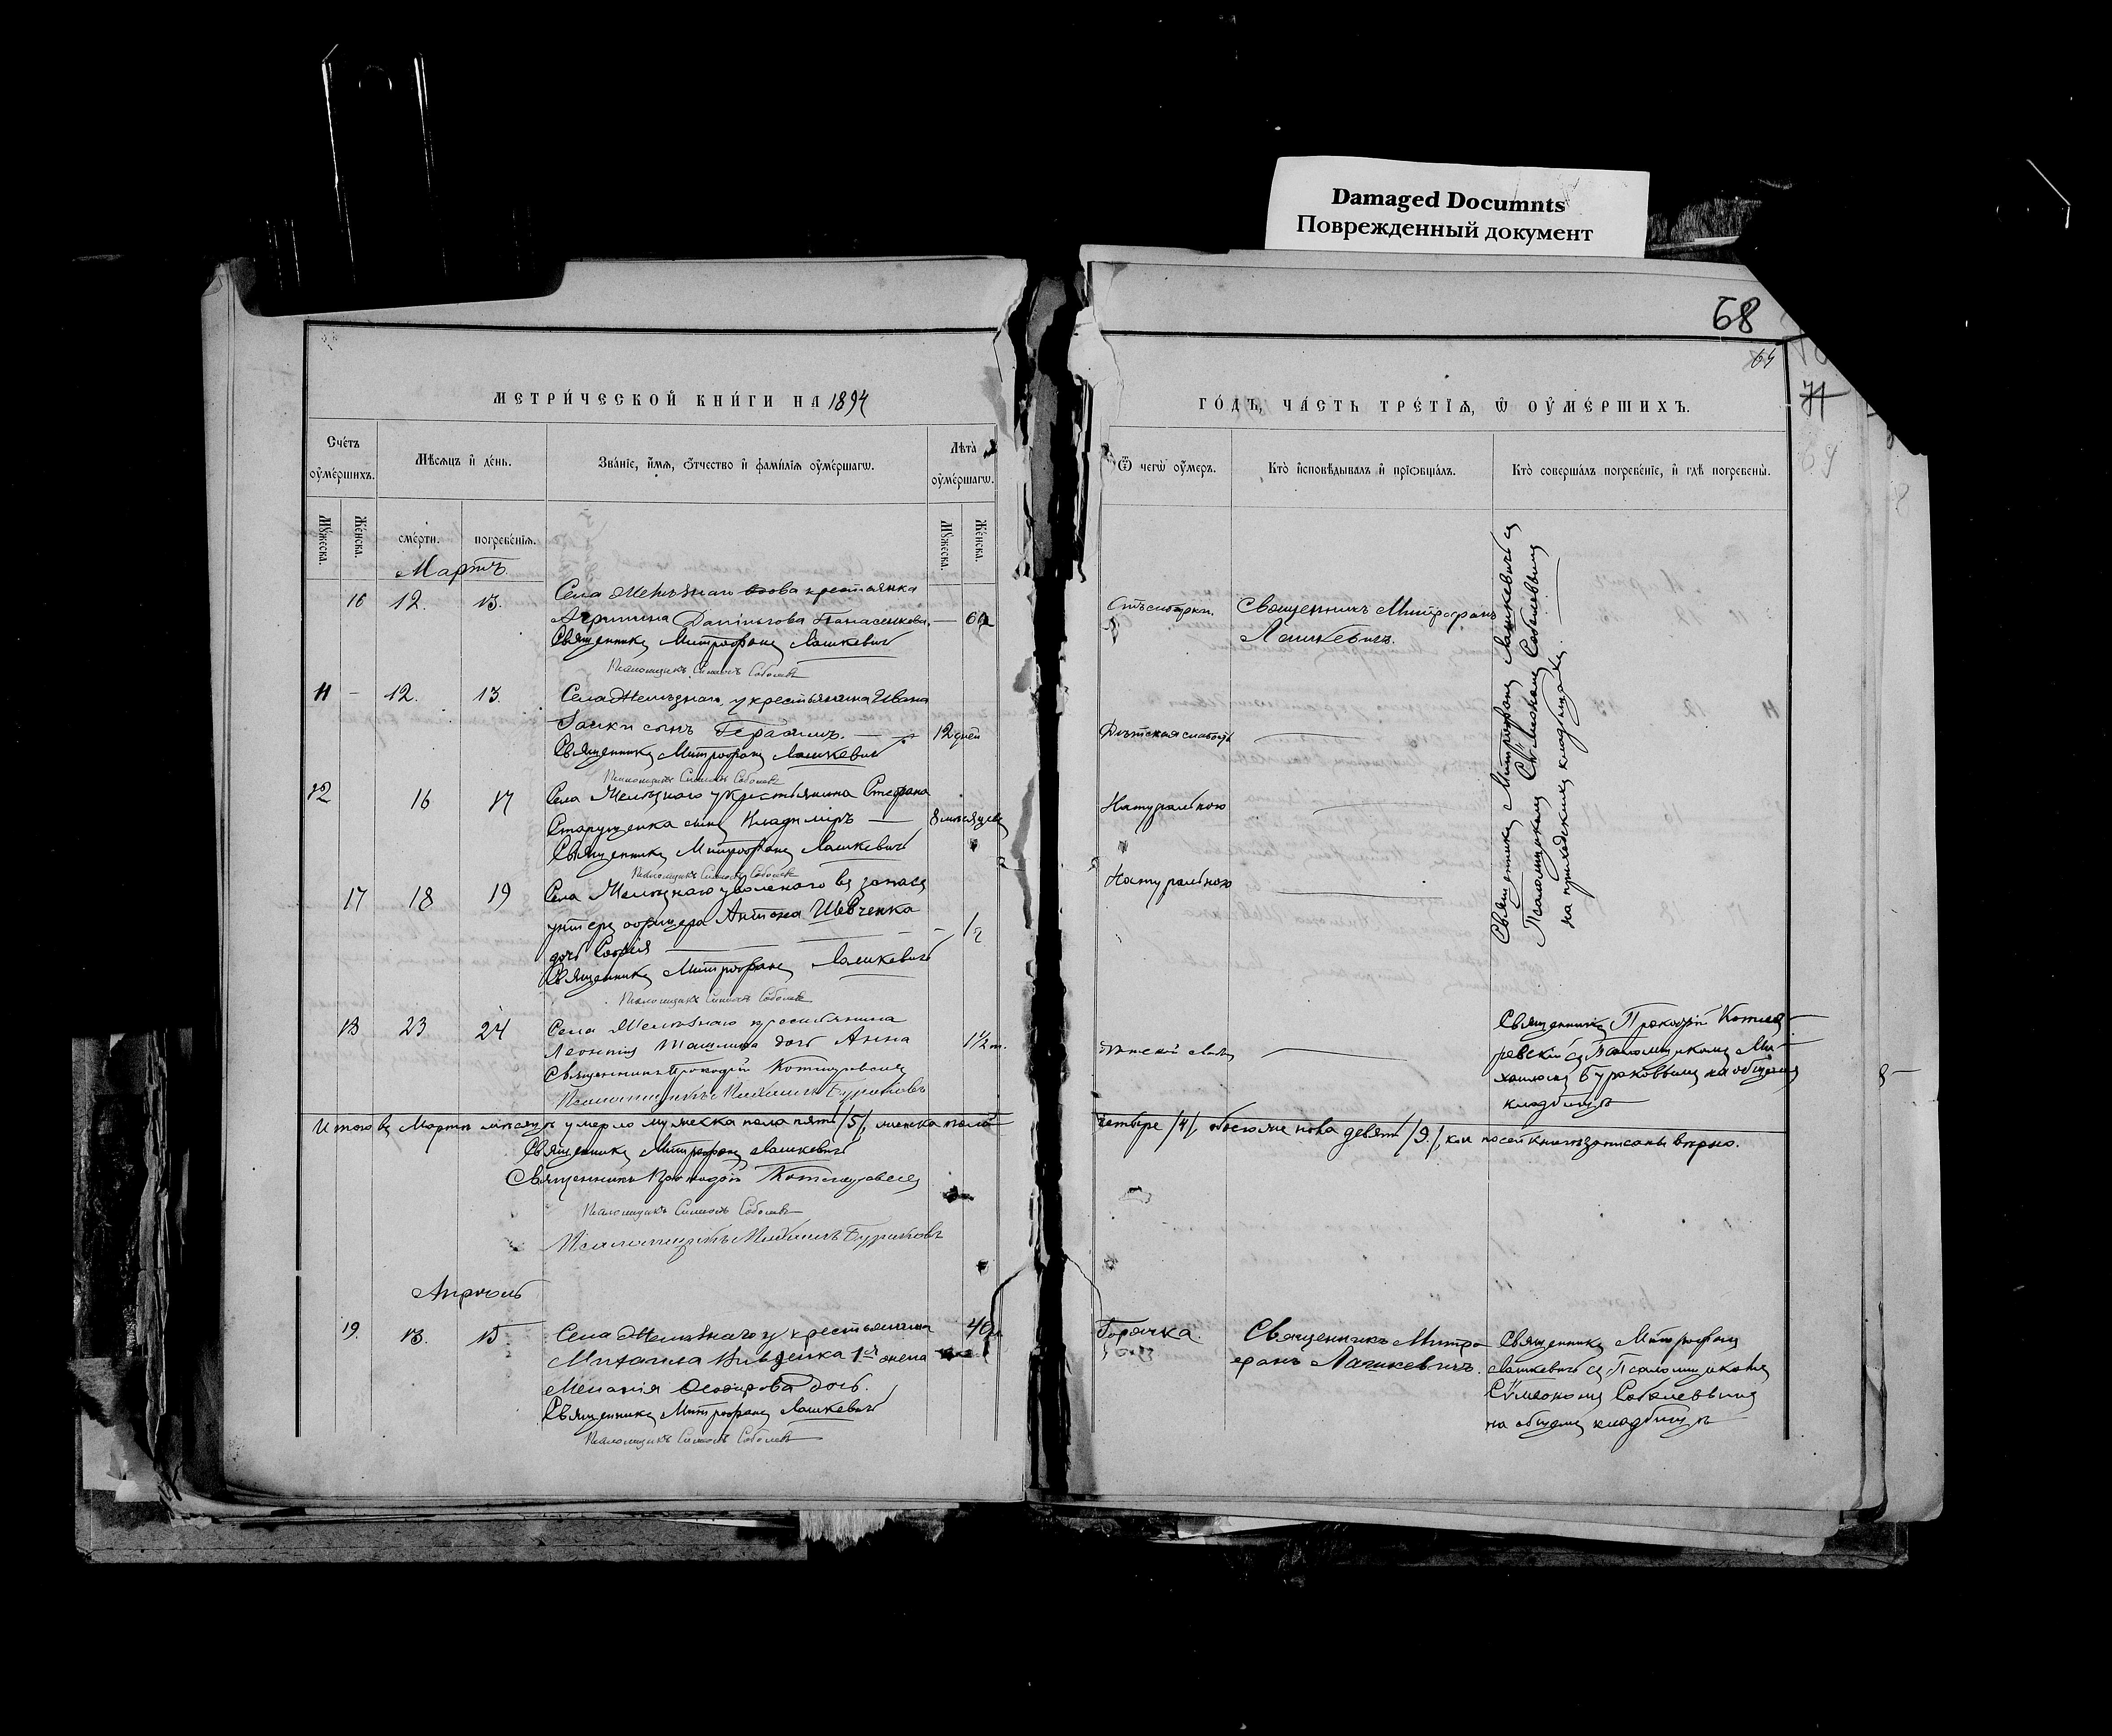 Damaged Documnts
Поврежденный документ
68
64
71
69
МЕТРИ́ЧЕСКОЙ КНИ́ГИ НА 1894
ГО́ДЪ, ЧА́СТЬ ТРЕ́ТІѦ, Ѡ҆ ОУ҆МЕ́РШИХЪ.
Сче́тъ оу҆ме́ршихъ.
Мѣ́сѧцъ и҆ де́нь.
Зва́нїе, и҆́мѧ, ѻ҆́тчество и҆ фамі́лїѧ оу҆ме́ршагѡ.
Лѣ́та оу҆ме́ршагѡ.
Ѿ чегѡ̀ оу҆́меръ.
Кто̀ и҆сповѣ́дывалъ и҆ прїѡбща́лъ.
Кто̀ соверша́лъ погребе́нїе, и҆ гдѣ̀ погребены̀.
Мꙋ́жеска.
Же́нска.
сме́рти.
погребе́нїѧ.
Мꙋ́жеска.
Же́нска.
Мартъ.
16 12. 13. Села крестьянка
Священникъ Митрофанъ Лашкевичъ
Псаломщикъ Симеонъ Соболевъ
Отъ старости. Священникъ Митрофанъ
Лашкевичъ.
Священникъ Митрофанъ Лашкевичъ съ
Псаломщикомъ Сѵмеономъ Соболевымъ
на приходскомъ кладбищѣ.
11 - 12. 13. Села у крестьянина Ивана
Заики сынъ Герасимъ. 12 дней
Священникъ Митрофанъ Лашкевичъ
Псаломщикъ Симеонъ Соболевъ
Дѣтская слабость
12 16 17 Села у крестьянина Стефана
сынъ Владиміръ 8 мѣсяцевъ
Священникъ Митрофанъ Лашкевичъ
Псаломщикъ Симеонъ Соболевъ
Натуральною
17 18 19 Села уволеннаго въ запасъ
унтеръ офицера Антона Шевченка
дочь Софія
Священникъ Митрофанъ Лашкевичъ
Псаломщикъ Симеонъ Соболевъ
Натуральною
18 23 24 Села крестьянина
Леонтія дочь Анна 1½
Священникъ Прокофій
Псаломщикъ Михаилъ Бураковъ
Священникъ Прокофій
съ Псаломщикомъ Ми-
хаиломъ Бураковымъ на общемъ
кладбищѣ
8
Итого въ Мартѣ мѣсяцѣ умерло мужеска пола пять /5/, женска пола четыре /4/, обоего пола девять /9/, кои по сей книгѣ записаны вѣрно.
Священникъ Митрофанъ Лашкевичъ
Священникъ Прокофій
Псаломщикъ Симеонъ Соболевъ
Псаломщикъ Михаилъ Бураковъ
Апрѣль
19. 13. 15 Села у крестьянина
Михаила 1я жена
Меланія Ѳеодорова дочь.
Священникъ Митрофанъ Лашкевичъ
Псаломщикъ Симеонъ Соболевъ
Горячка. Священникъ Митро-
фанъ Лашкевичъ.
Священникъ Митрофанъ
Лашкевичъ съ Псаломщикомъ
Сѵмеономъ Соболевымъ
на общемъ кладбищѣ